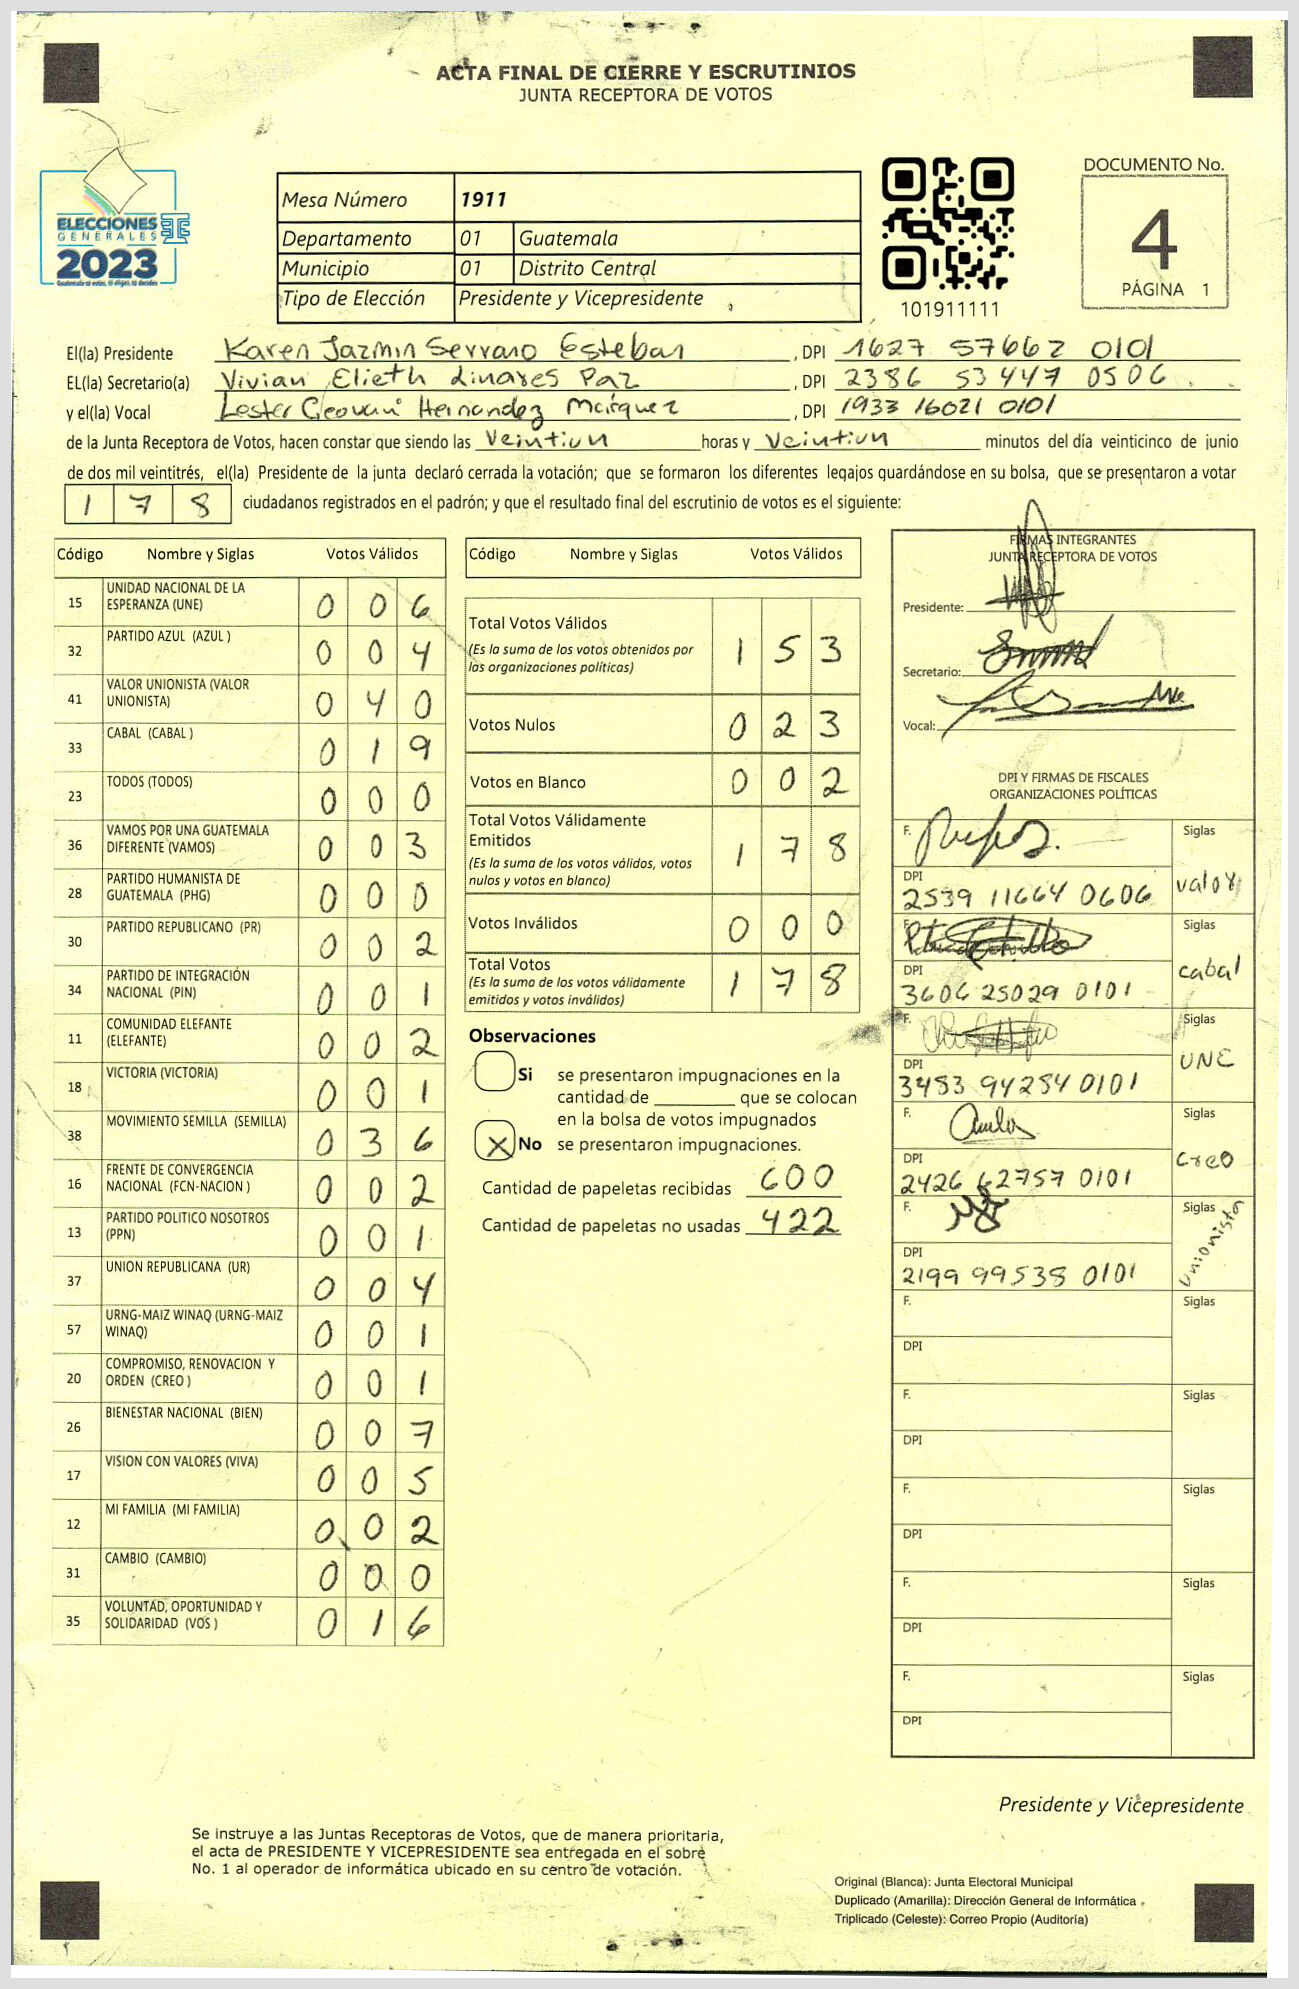 ACTA FINAL DE CIERRE Y ESCRUTINIOS
JUNTA RECEPTORA DE VOTOS
ELECCIONES
GENERALES
2023
Mesa Número 1911
Departamento 01 Guatemala
Municipio 01 Distrito Central
Tipo de Elección Presidente y Vicepresidente
101911111
DOCUMENTO No.
4
PÁGINA 1
El(la) Presidente Karen Jazmin Serrano Esteban , DPI 1627 57662 0101
EL(la) Secretario(a) Vivian Elieth Linares Paz , DPI 2386 53447 0506
y el(la) Vocal Lester Geovani Hernandez Marquez , DPI 1933 16021 0101
de la Junta Receptora de Votos, hacen constar que siendo las Veintiun horas y Veintiun minutos del día veinticinco de junio
de dos mil veintitrés, el(la) Presidente de la junta declaró cerrada la votación; que se formaron los diferentes legajos guardándose en su bolsa, que se presentaron a votar
1 7 8 ciudadanos registrados en el padrón; y que el resultado final del escrutinio de votos es el siguiente:
Código Nombre y Siglas Votos Válidos
15 UNIDAD NACIONAL DE LA ESPERANZA (UNE) 0 0 6
32 PARTIDO AZUL (AZUL ) 0 0 4
41 VALOR UNIONISTA (VALOR UNIONISTA) 0 4 0
33 CABAL (CABAL ) 0 1 9
23 TODOS (TODOS) 0 0 0
36 VAMOS POR UNA GUATEMALA DIFERENTE (VAMOS) 0 0 3
28 PARTIDO HUMANISTA DE GUATEMALA (PHG) 0 0 0
30 PARTIDO REPUBLICANO (PR) 0 0 2
34 PARTIDO DE INTEGRACIÓN NACIONAL (PIN) 0 0 1
11 COMUNIDAD ELEFANTE (ELEFANTE) 0 0 2
18 VICTORIA (VICTORIA) 0 0 1
38 MOVIMIENTO SEMILLA (SEMILLA) 0 3 6
16 FRENTE DE CONVERGENCIA NACIONAL (FCN-NACION ) 0 0 2
13 PARTIDO POLITICO NOSOTROS (PPN) 0 0 1
37 UNION REPUBLICANA (UR) 0 0 4
57 URNG-MAIZ WINAQ (URNG-MAIZ WINAQ) 0 0 1
20 COMPROMISO, RENOVACION Y ORDEN (CREO ) 0 0 1
26 BIENESTAR NACIONAL (BIEN) 0 0 7
17 VISION CON VALORES (VIVA) 0 0 5
12 MI FAMILIA (MI FAMILIA) 0 0 2
31 CAMBIO (CAMBIO) 0 0 0
35 VOLUNTAD, OPORTUNIDAD Y SOLIDARIDAD (VOS ) 0 1 6
Código Nombre y Siglas Votos Válidos
Total Votos Válidos 1 5 3
(Es la suma de los votos obtenidos por
las organizaciones políticas)
Votos Nulos 0 2 3
Votos en Blanco 0 0 2
Total Votos Válidamente
Emitidos 1 7 8
(Es la suma de los votos válidos, votos
nulos y votos en blanco)
Votos Inválidos 0 0 0
Total Votos 1 7 8
(Es la suma de los votos válidamente
emitidos y votos inválidos)
Observaciones
Si se presentaron impugnaciones en la
cantidad de ________ que se colocan
en la bolsa de votos impugnados
X No se presentaron impugnaciones.
Cantidad de papeletas recibidas 600
Cantidad de papeletas no usadas 422
FIRMAS INTEGRANTES
JUNTA RECEPTORA DE VOTOS
Presidente:
Secretario:
Vocal:
DPI Y FIRMAS DE FISCALES
ORGANIZACIONES POLÍTICAS
F. Siglas
DPI valor
2539 11664 0606
F. Siglas
DPI cabal
3606 25029 0101
F. Siglas
DPI UNE
3453 94254 0101
F. Siglas
DPI creo
2426 62757 0101
F. Siglas
DPI Unionista
2199 99538 0101
F. Siglas
DPI
F. Siglas
DPI
F. Siglas
DPI
F. Siglas
DPI
F. Siglas
DPI
Presidente y Vicepresidente
Se instruye a las Juntas Receptoras de Votos, que de manera prioritaria,
el acta de PRESIDENTE Y VICEPRESIDENTE sea entregada en el sobre
No. 1 al operador de informática ubicado en su centro de votación.
Original (Blanca): Junta Electoral Municipal
Duplicado (Amarilla): Dirección General de Informática
Triplicado (Celeste): Correo Propio (Auditoría)